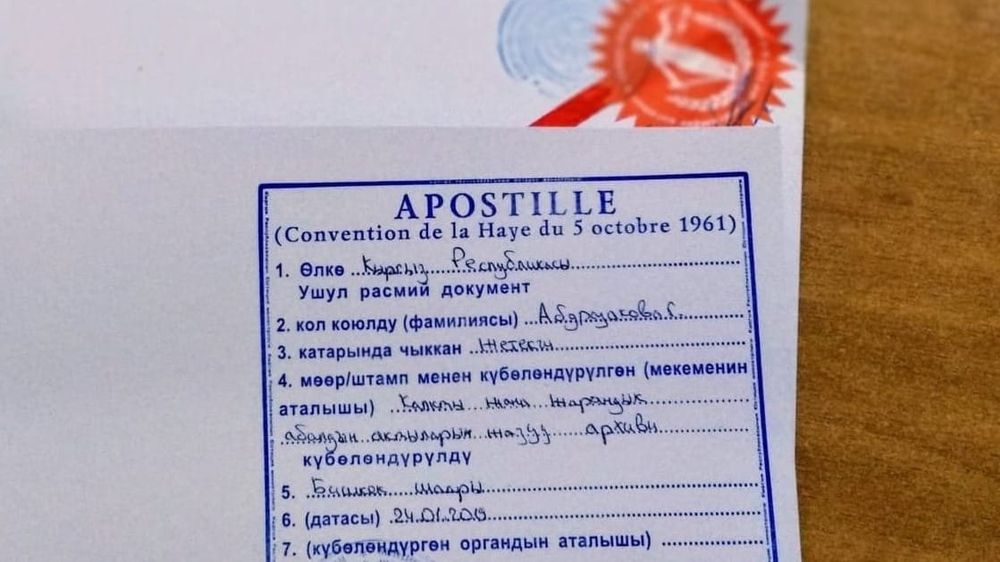 APOSTILLE
(Convention de la Haye du 5 octobre 1961)
1. Өлкө Кыргыз Республикасы
Ушул расмий документ
2. кол коюлду (фамилиясы)
3. катарында чыккан Жетекчи
4. мөөр/штамп менен күбөлөндүрүлгөн (мекеменин
аталышы) Калкты жана жарандык
абалдын актыларын жазуу архиви
күбөлөндүрүлдү
5. Бишкек шаары
6. (датасы) 24.01.2019
7. (күбөлөндүргөн органдын аталышы)